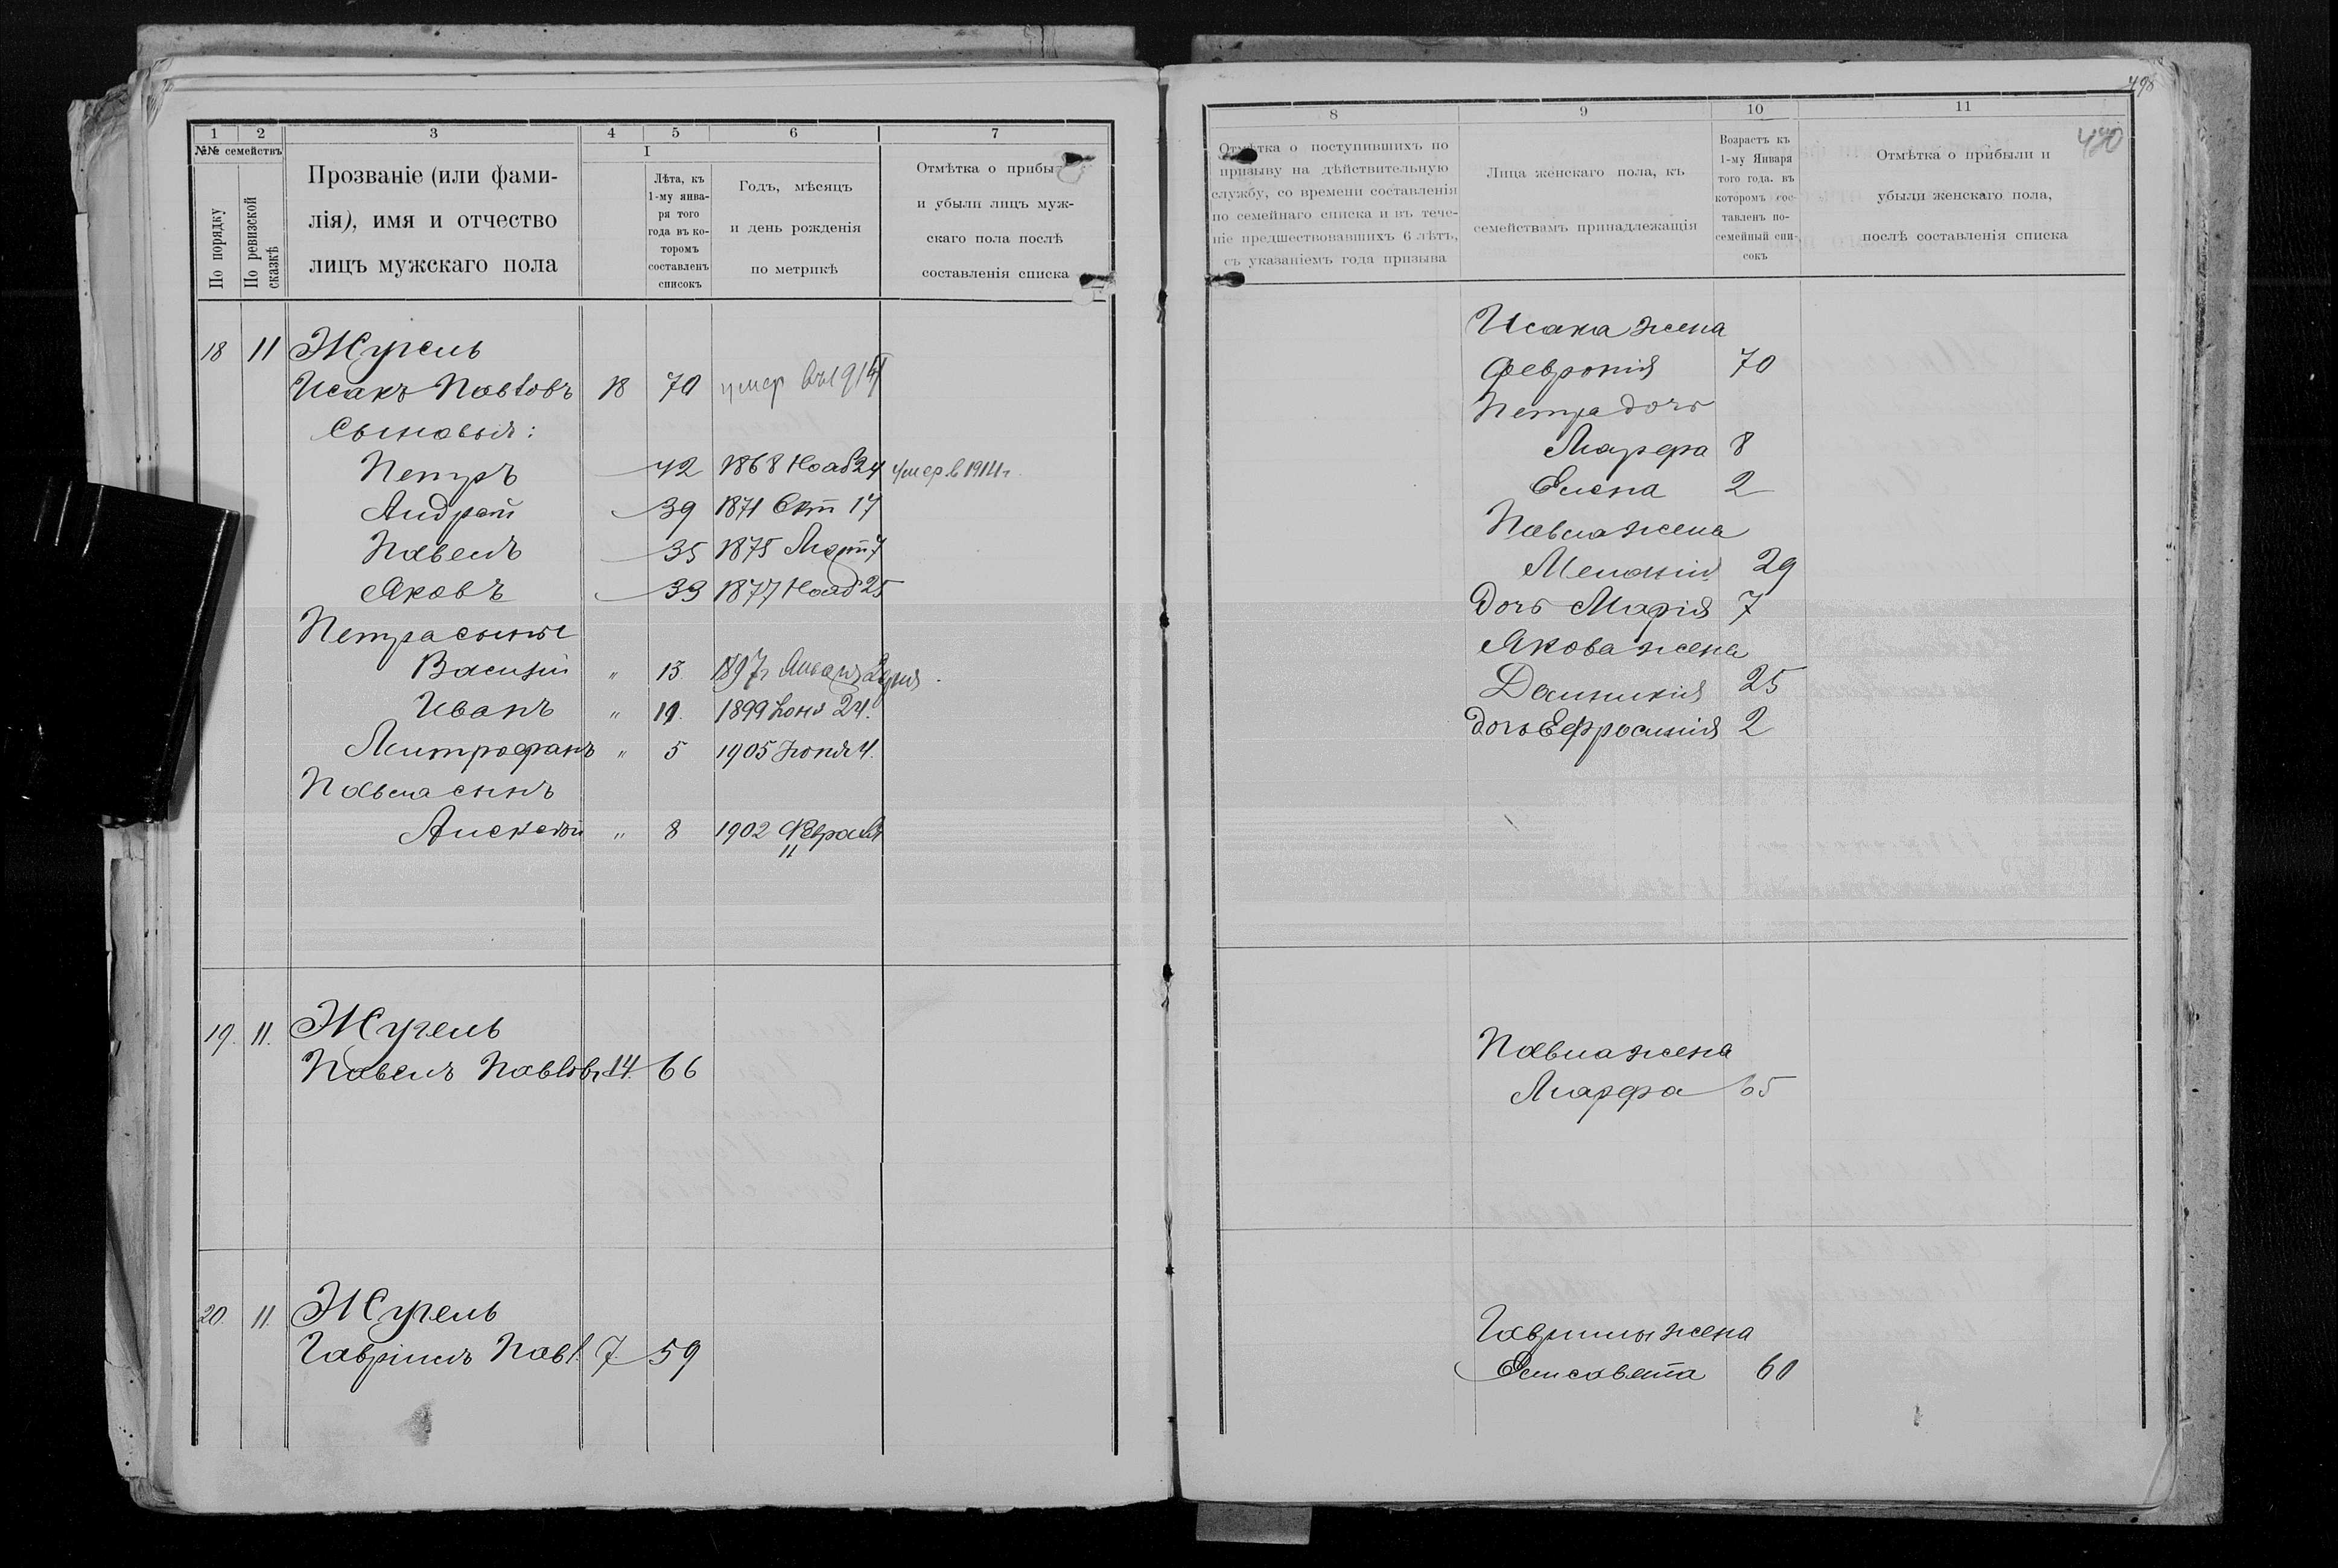 1 2 3 4 5 6 7
№№ семействъ
По порядку
По ревизской сказкѣ
Прозваніе (или фами-
лія), имя и отчество
лицъ мужскаго пола
I
Лѣта, къ
1-му янва-
ря того
года въ ко-
торомъ
составленъ
списокъ
Годъ, мѣсяцъ
и день рожденія
по метрикѣ
Отмѣтка о прибы
и убыли лицъ муж-
скаго пола послѣ
составленія списка
18 11 Жугель
Исакъ Павловъ 18 70 умер въ 1914
Сыновья:
Петръ 42 1868 Нояб 24 умер в 1914 г.
Андрей 39 1871 Окт 17
Павелъ 35 1875 Март 7
Яковъ 33 1877 Нояб 25
Петра сынъ
Василій „ 13 1897
Иванъ „ 11. 1899 Іюня 24.
Митрофанъ „ 5 1905 Іюня 4.
Павла сынъ
Алексѣй „ 8 1902 Февраля
11
19. 11. Жугель
Павелъ Павлов. 14. 66
20. 11. Жугель
Гавріилъ Павл. 7. 59
498
8 9 10 11
420
Отмѣтка о поступившихъ по
призыву на дѣйствительную
службу, со времени составленія
по семейнаго списка и въ тече-
ніе предшествовавшихъ 6 лѣтъ,
съ указаніемъ года призыва
Лица женскаго пола, къ
семействамъ принадлежащія
Возрастъ къ
1-му Января
того года. въ
которомъ сос-
тавленъ по-
семейный спи-
сокъ
Отмѣтка о прибыли и
убыли женскаго пола,
послѣ составленія списка
Исака жена
Февронія 70
Петра дочь
Марфа 8
Елена 2
Павла жена
Меланія 29
Дочь Марія 7
Якова жена
Домникія 25
Дочь Ефросинія 2
Павла жена
Марфа 65
Гавриила жена
Елисавета 60